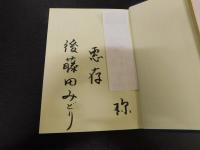 様
恵存
後藤田みどり